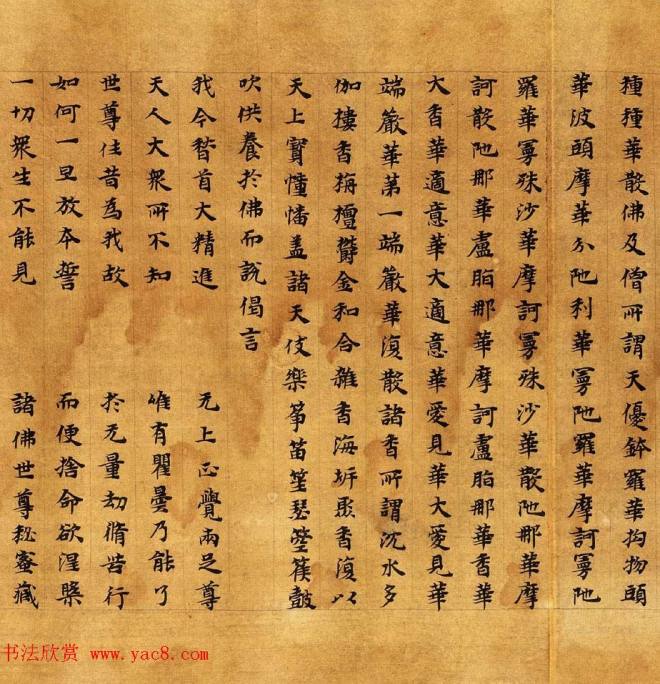 種種華散佛及僧所謂天優鉢羅華拘物頭
華波頭摩華分陁利華曼陁羅華摩訶曼陁
羅華曼殊沙華摩訶曼殊沙華散陁那華摩
訶散陁那華盧脂那華摩訶盧脂那華香華
大香華適意華大適意華愛見華大愛見華
端嚴華第一端嚴華復散諸香所謂沈水多
伽樓香栴檀欝金和合雜香海岸聚香復以
天上寶幢幡盖諸天伎樂筝笛笙瑟箜篌皷
吹供養於佛而說偈言
我今稽首大精進 无上正覺兩足尊
天人大衆所不知 唯有瞿曇乃能了
世尊往昔為我故 於无量劫脩苦行
如何一旦放本誓 而便捨命欲涅槃
一切衆生不能見 諸佛世尊秘蜜藏
书法欣赏 www.yac8.com